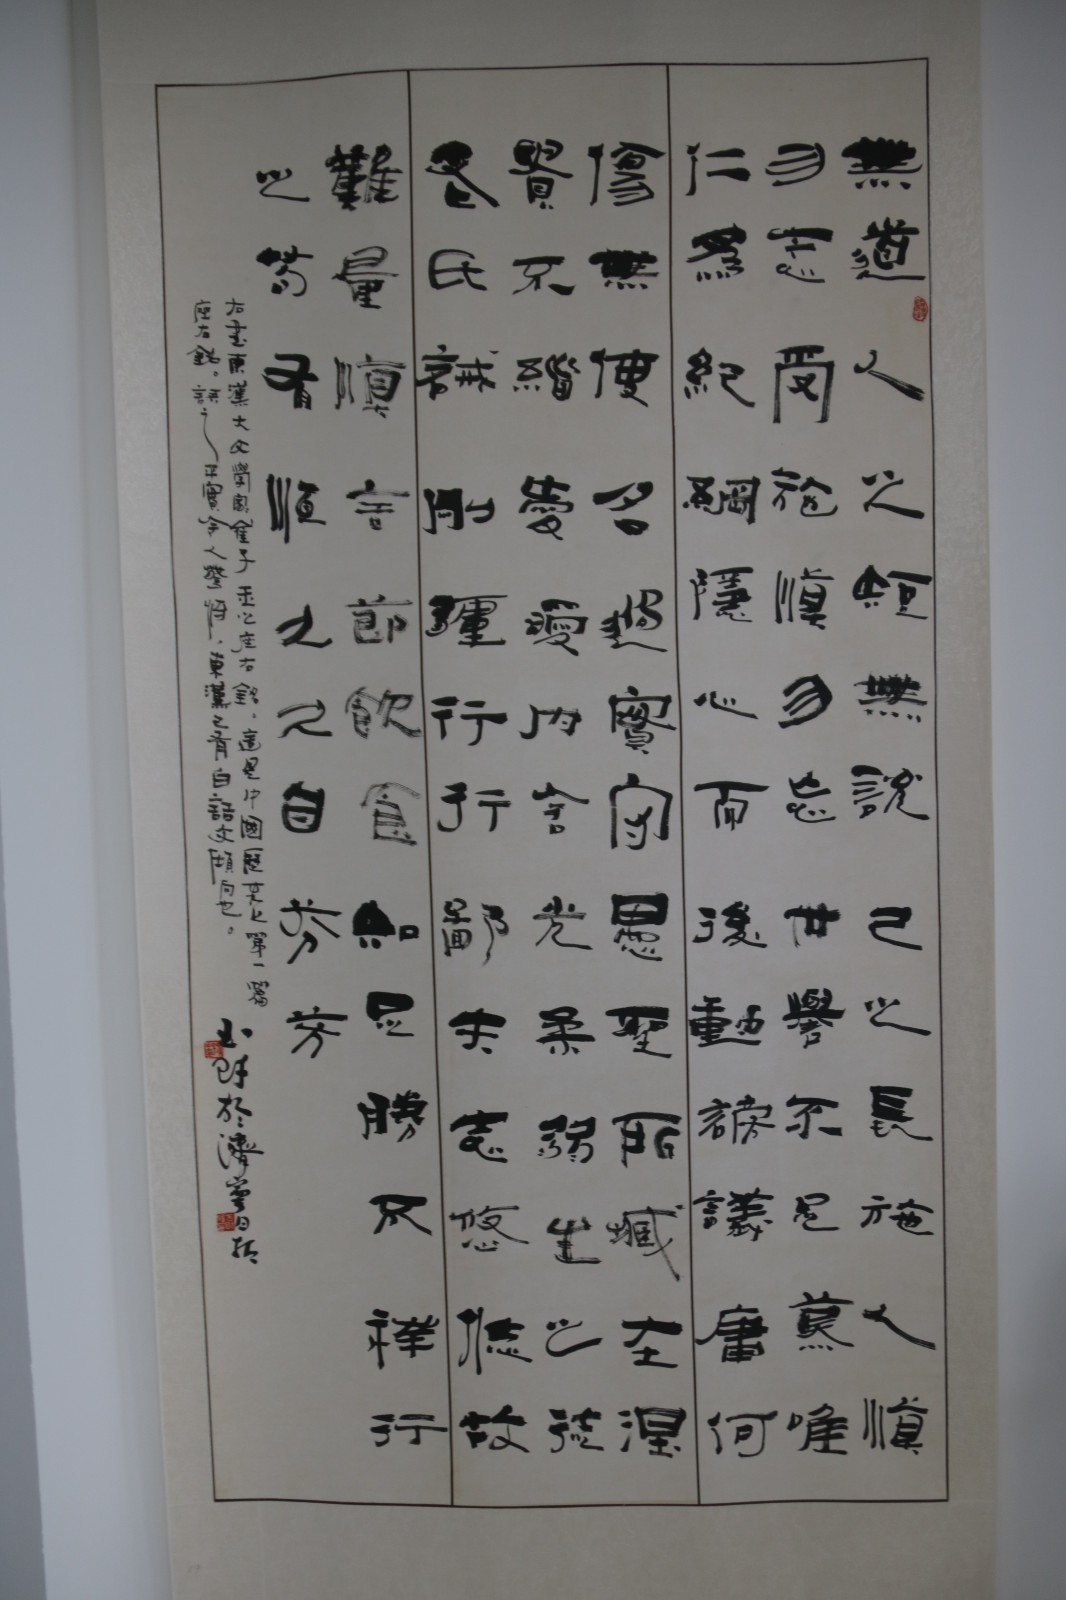 無道人之短無說己之長施人慎
勿志受施慎勿忘世譽不足慕唯
仁為紀綱隱心而後動謗議庸何
傷無使名過實守愚聖所臧在涅
賢不緇曖曖內含光柔弱生之徒
老氏誡剛彊行行鄙夫志悠悠故
難量慎言節飲食知足勝不祥行
之苟有恆久之自芬芳
右書東漢大文學家崔子玉之座右銘，這是中國歷史上第一篇
座右銘。讀之平實令人警悟，東漢已有白話文傾向也。
於濟